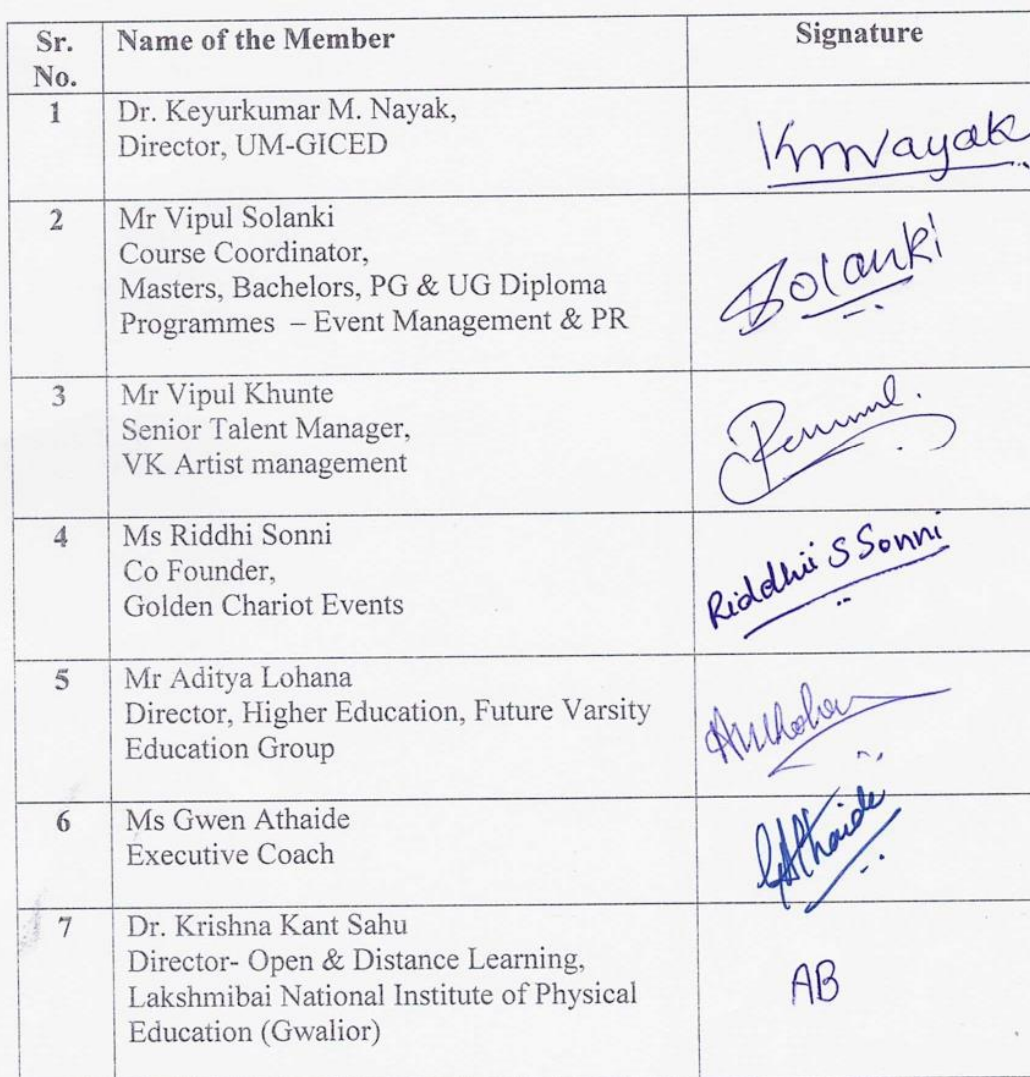 Sr. Name of the Member Signature
No.
1 Dr. Keyurkumar M. Nayak,
Director, UM-GICED
KMNayak
2 Mr Vipul Solanki
Course Coordinator,
Masters, Bachelors, PG & UG Diploma
Programmes – Event Management & PR
Solanki
3 Mr Vipul Khunte
Senior Talent Manager,
VK Artist management
4 Ms Riddhi Sonni
Co Founder,
Golden Chariot Events
Riddhii S Sonni
5 Mr Aditya Lohana
Director, Higher Education, Future Varsity
Education Group
6 Ms Gwen Athaide
Executive Coach
GAthaide
7 Dr. Krishna Kant Sahu
Director- Open & Distance Learning,
Lakshmibai National Institute of Physical
Education (Gwalior)
AB